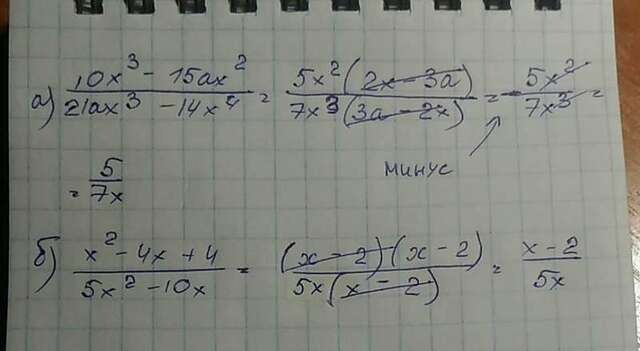 а) (10x³ - 15ax²)/(21ax³ - 14x⁴) = (5x²(2x - 3a))/(7x³(3a - 2x)) = -(5x²)/(7x³) =
минус
= 5/(7x)
б) (x² - 4x + 4)/(5x² - 10x) = ((x - 2)(x - 2))/(5x(x - 2)) = (x - 2)/(5x)